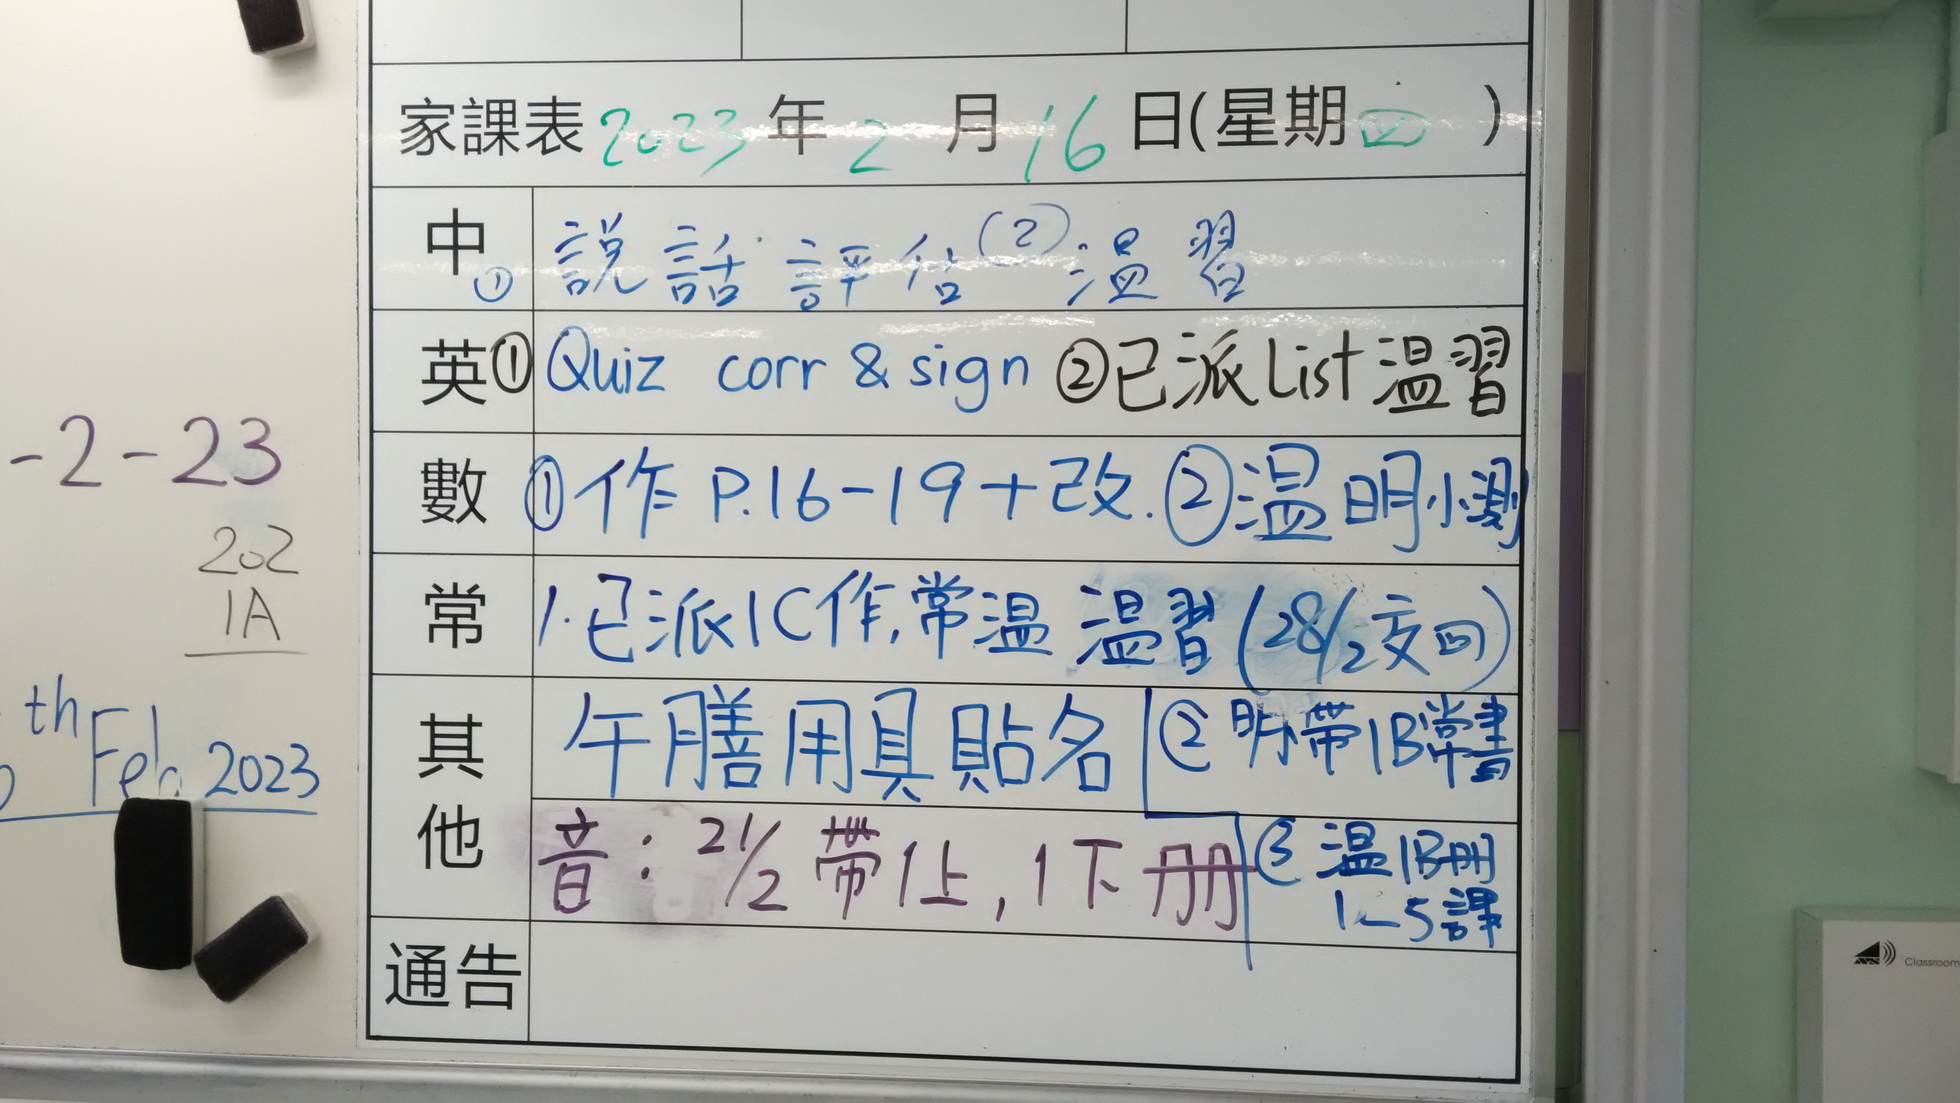 家課表 2023 年 2 月 16 日(星期四)
中 ① 說話評估(2)溫習
英 ① Quiz corr & sign ②已派List溫習
數 ①作 P.16-19+改. ②溫明小測
常 1.已派1C作,常溫 溫習 (28/2交回)
其他 午膳用具貼名 ② 明帶1B常書
音：21/2 帶1上,1下冊 ③ 溫1B冊
1~5課
通告
-2-23
202
1A
th Feb 2023
Classroom